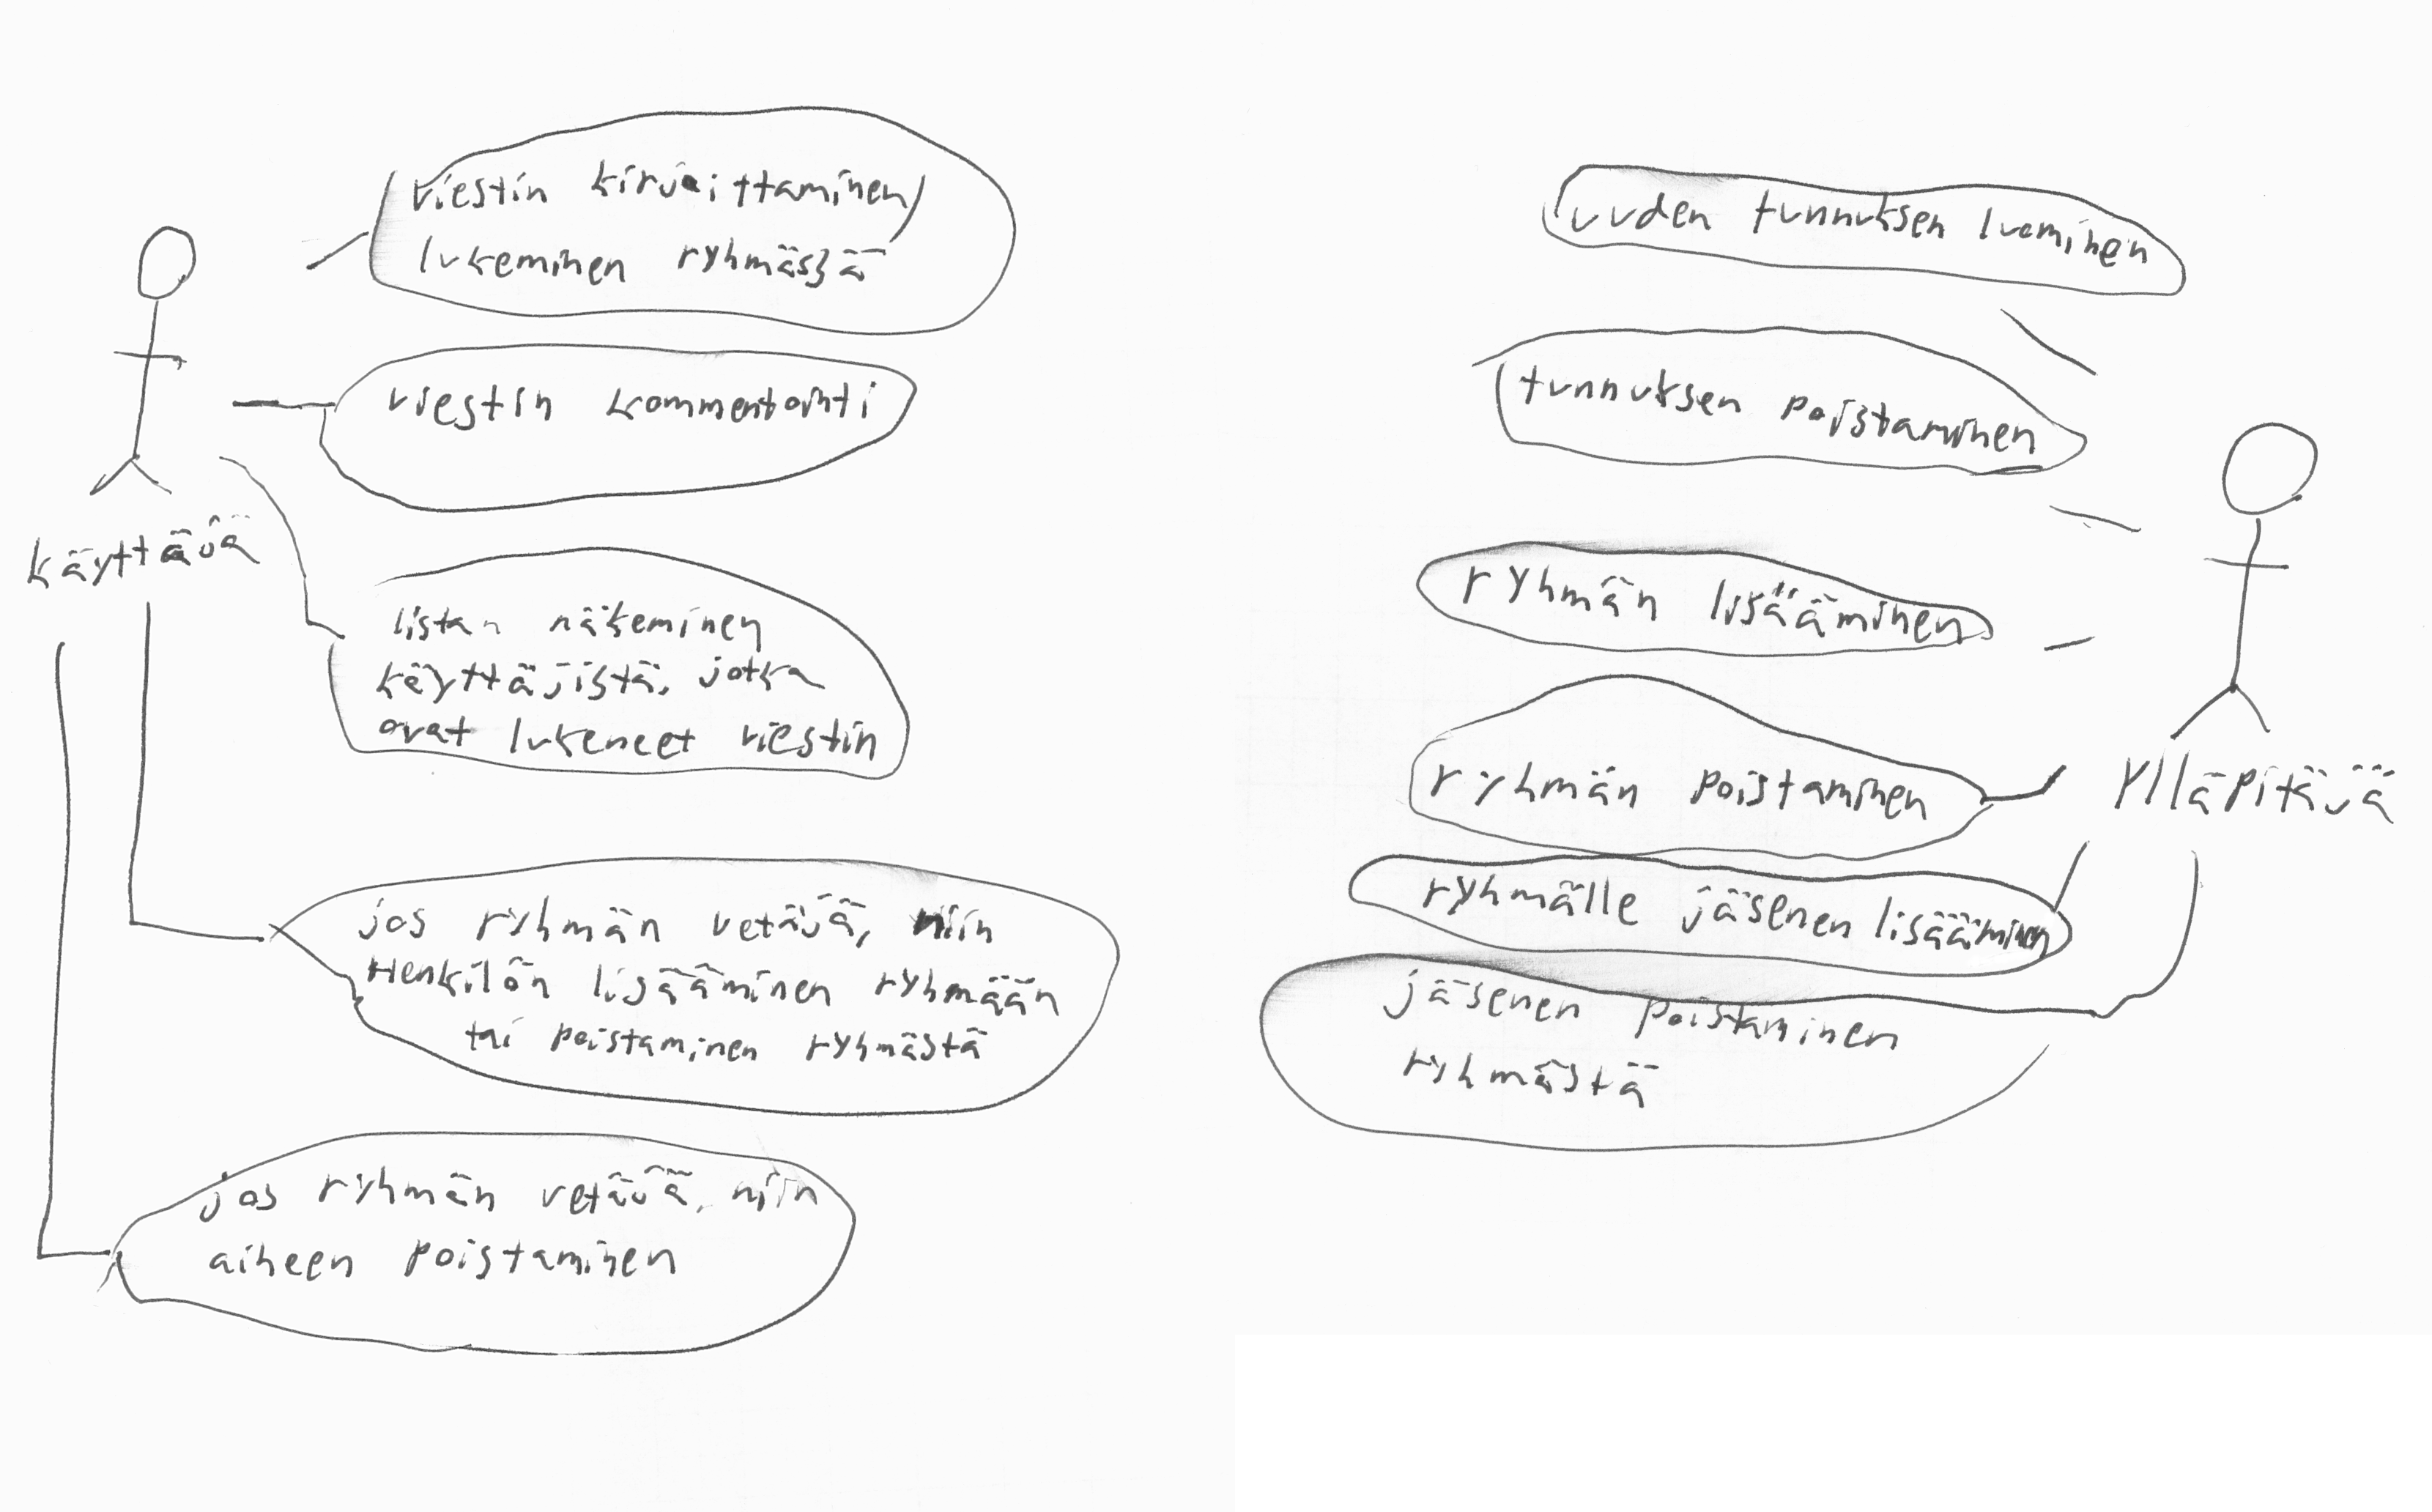 viestin kirjoittaminen/
lukeminen ryhmässä
viestin kommentointi
käyttäjä
listan näkeminen
käyttäjistä, jotka
ovat lukeneet viestin
jos ryhmän vetäjä, niin
Henkilön lisääminen ryhmään
tai poistaminen ryhmästä
jos ryhmän vetäjä, niin
aiheen poistaminen
uuden tunnuksen luominen
tunnuksen poistaminen
ryhmän lisääminen
ryhmän poistaminen
ylläpitäjä
ryhmälle jäsenen lisääminen
jäsenen poistaminen
ryhmästä